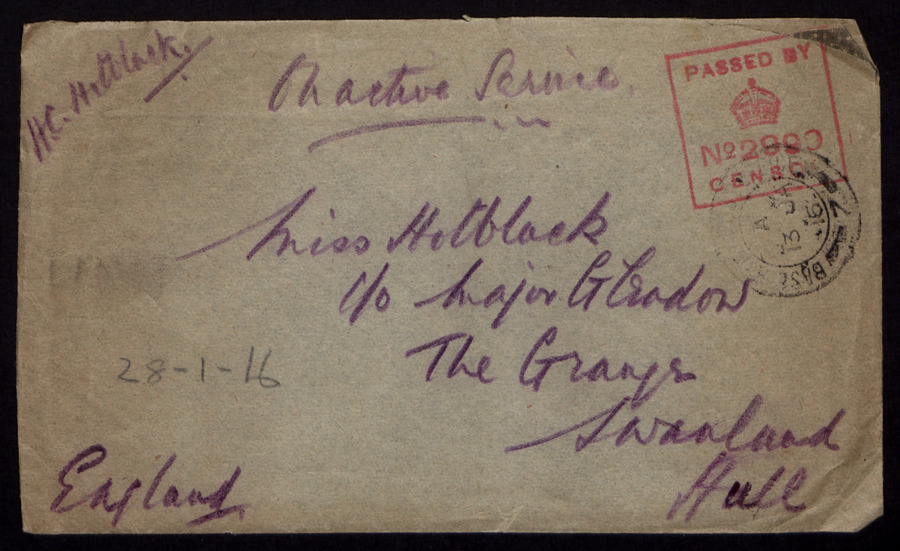 H.C. Hotblack.
On active Service.
PASSED BY
No 2990
CENSOR
BASE
A
13 JA
16
Z
Miss Hotblack
c/o Major G Leadow
The Grange
Swanland
Hull
28-1-16
England